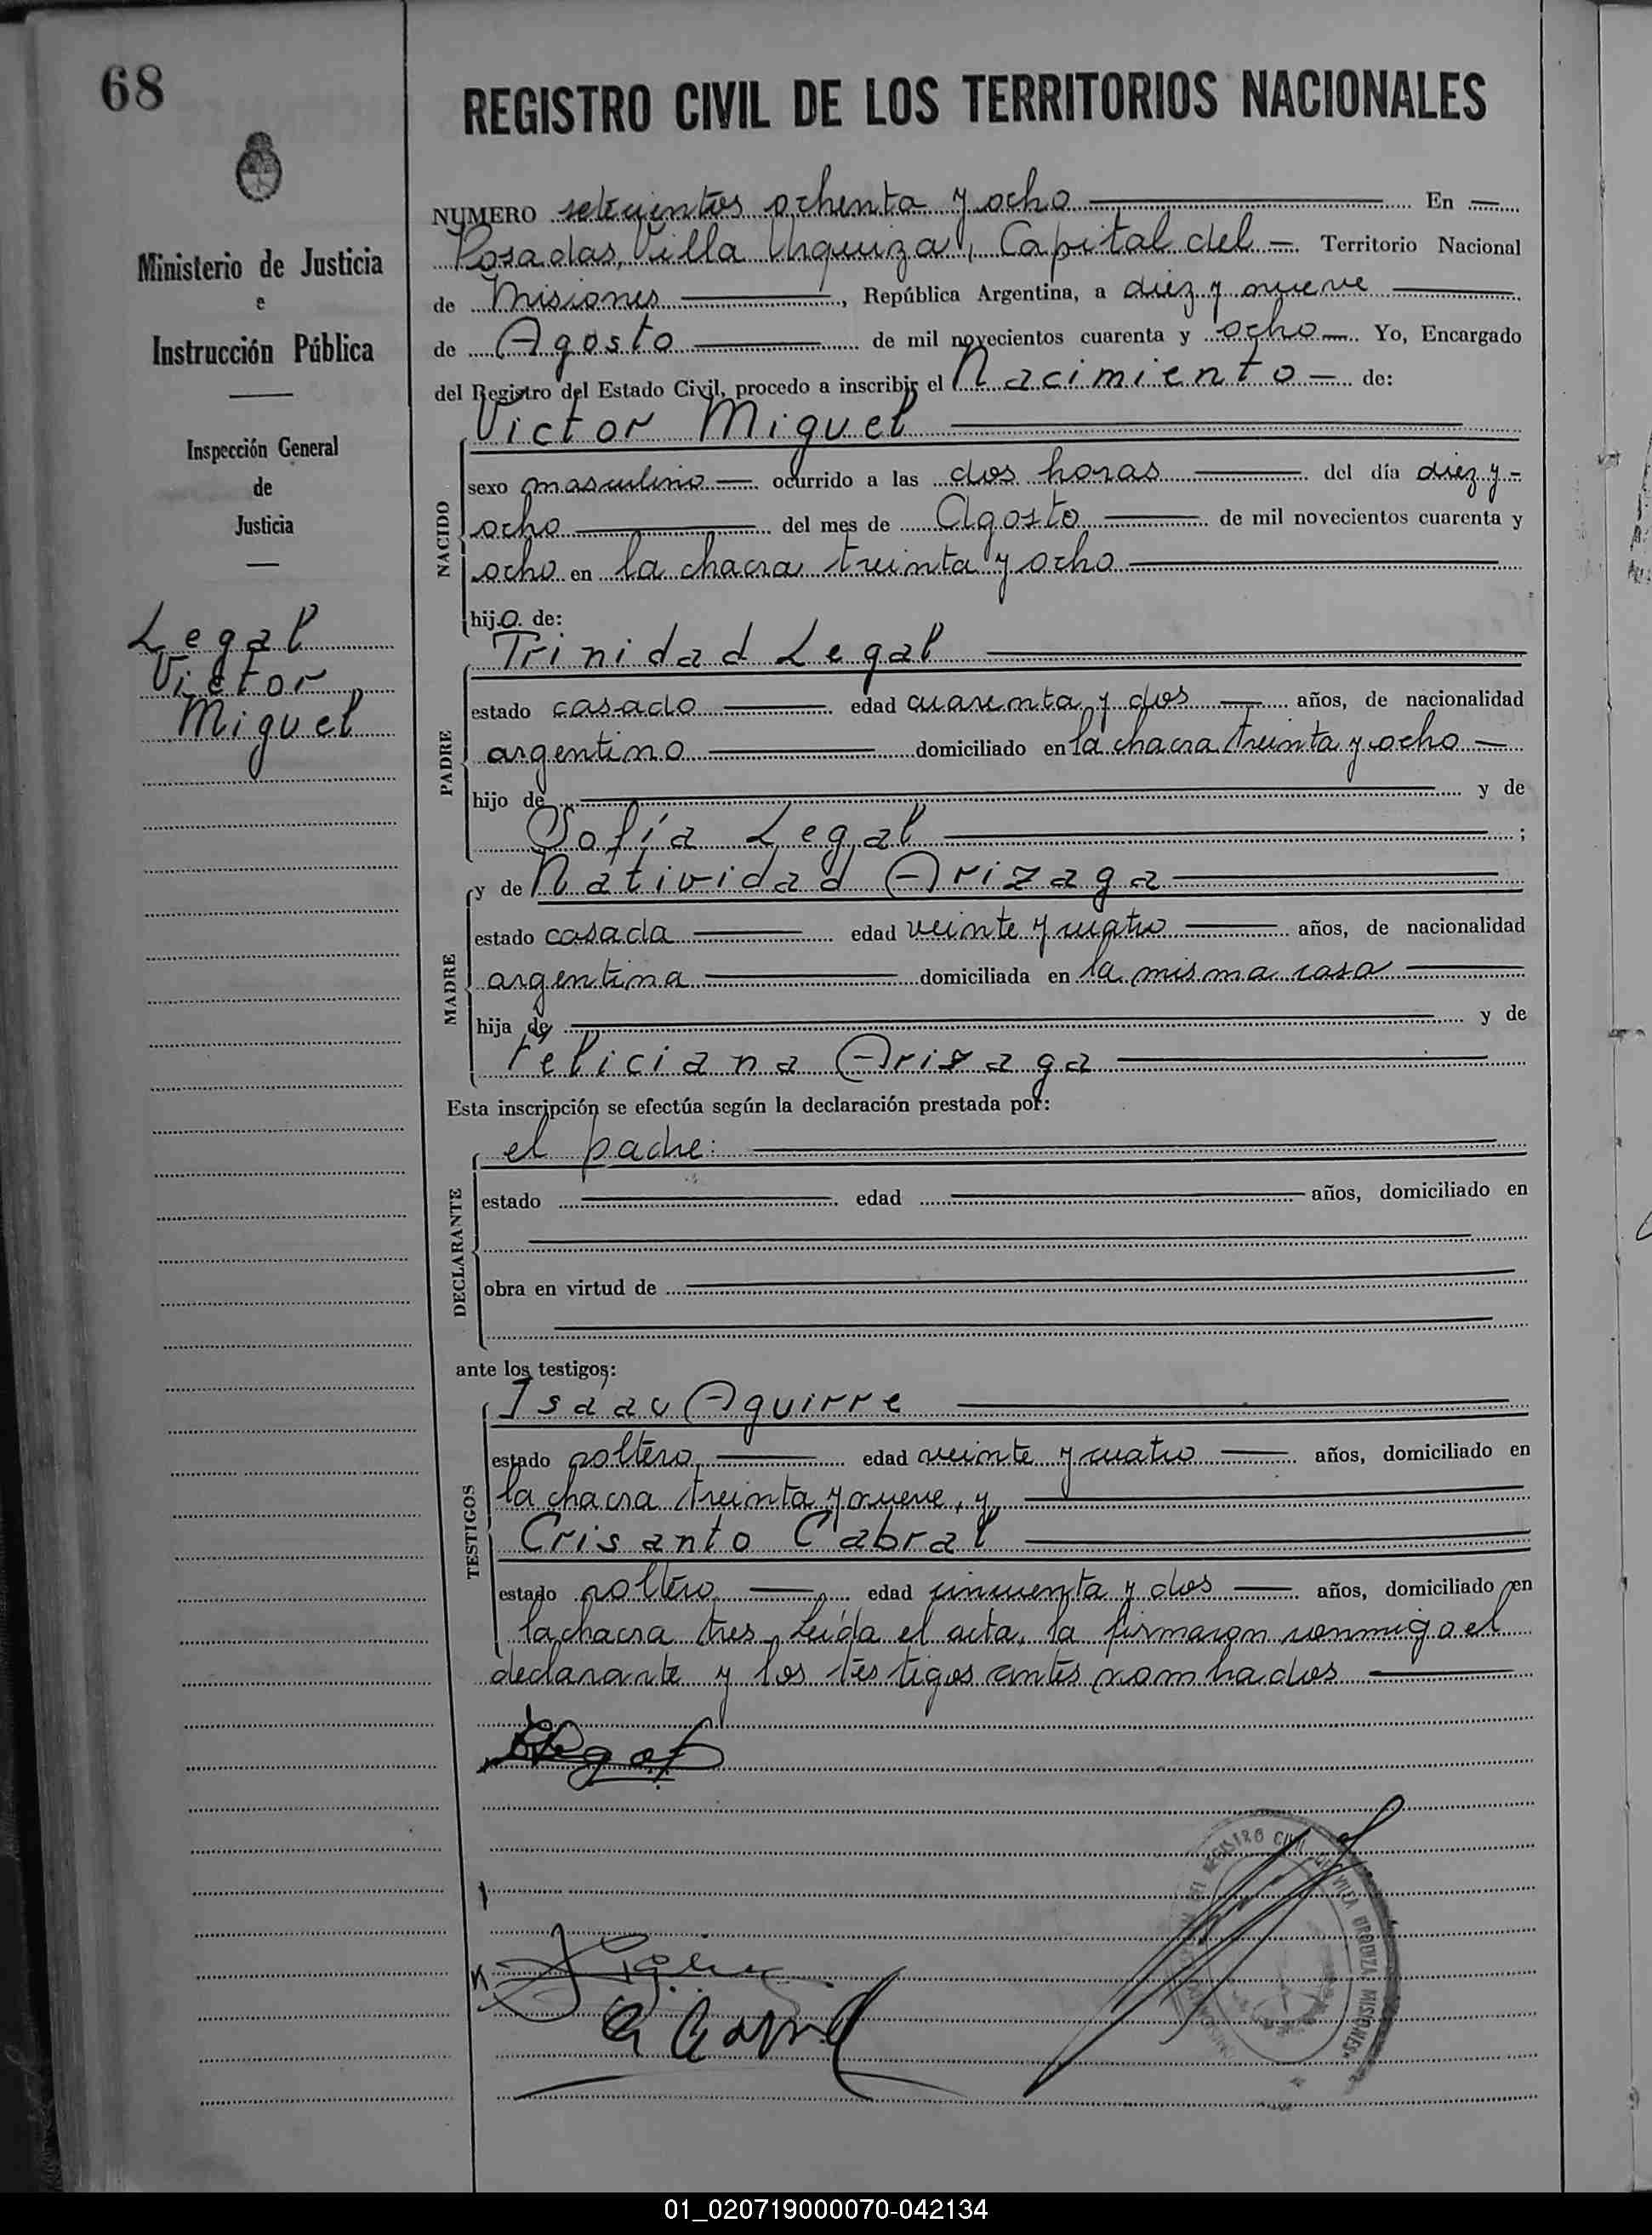 68
REGISTRO CIVIL DE LOS TERRITORIOS NACIONALES
Ministerio de Justicia
e
Instrucción Pública
Inspección General
de
Justicia
Legal
Victor
Miguel
NUMERO setecientos ochenta y ocho En
Posadas, Villa Urquiza, Capital del Territorio Nacional
de Misiones, República Argentina, a diez y nueve
de Agosto de mil novecientos cuarenta y ocho Yo, Encargado
del Registro del Estado Civil, procedo a inscribir el Nacimiento de:
NACIDO
Victor Miguel
sexo masculino ocurrido a las dos horas del día diez y
ocho del mes de Agosto de mil novecientos cuarenta y
ocho en la chacra treinta y ocho
hijo de:
PADRE
Trinidad Legal
estado casado edad cuarenta y dos años, de nacionalidad
argentino domiciliado en la chacra treinta y ocho
hijo de y de
Sofía Legal ;
MADRE
y de Natividad Arizaga
estado casada edad veinte y cuatro años, de nacionalidad
argentina domiciliada en la misma casa
hija de y de
Feliciana Arizaga
Esta inscripción se efectúa según la declaración prestada por:
DECLARANTE
el padre:
estado edad años, domiciliado en
obra en virtud de
ante los testigos:
TESTIGOS
Isaac Aguirre
estado soltero edad veinte y cuatro años, domiciliado en
la chacra treinta y nueve, y
Crisanto Cabral
estado soltero edad cincuenta y dos años, domiciliado en
la chacra tres. Leída el acta, la firmaron conmigo el
declarante y los testigos antes nombrados
REGISTRO CIVIL DE VILLA URQUIZA MISIONES
01_020719000070-042134